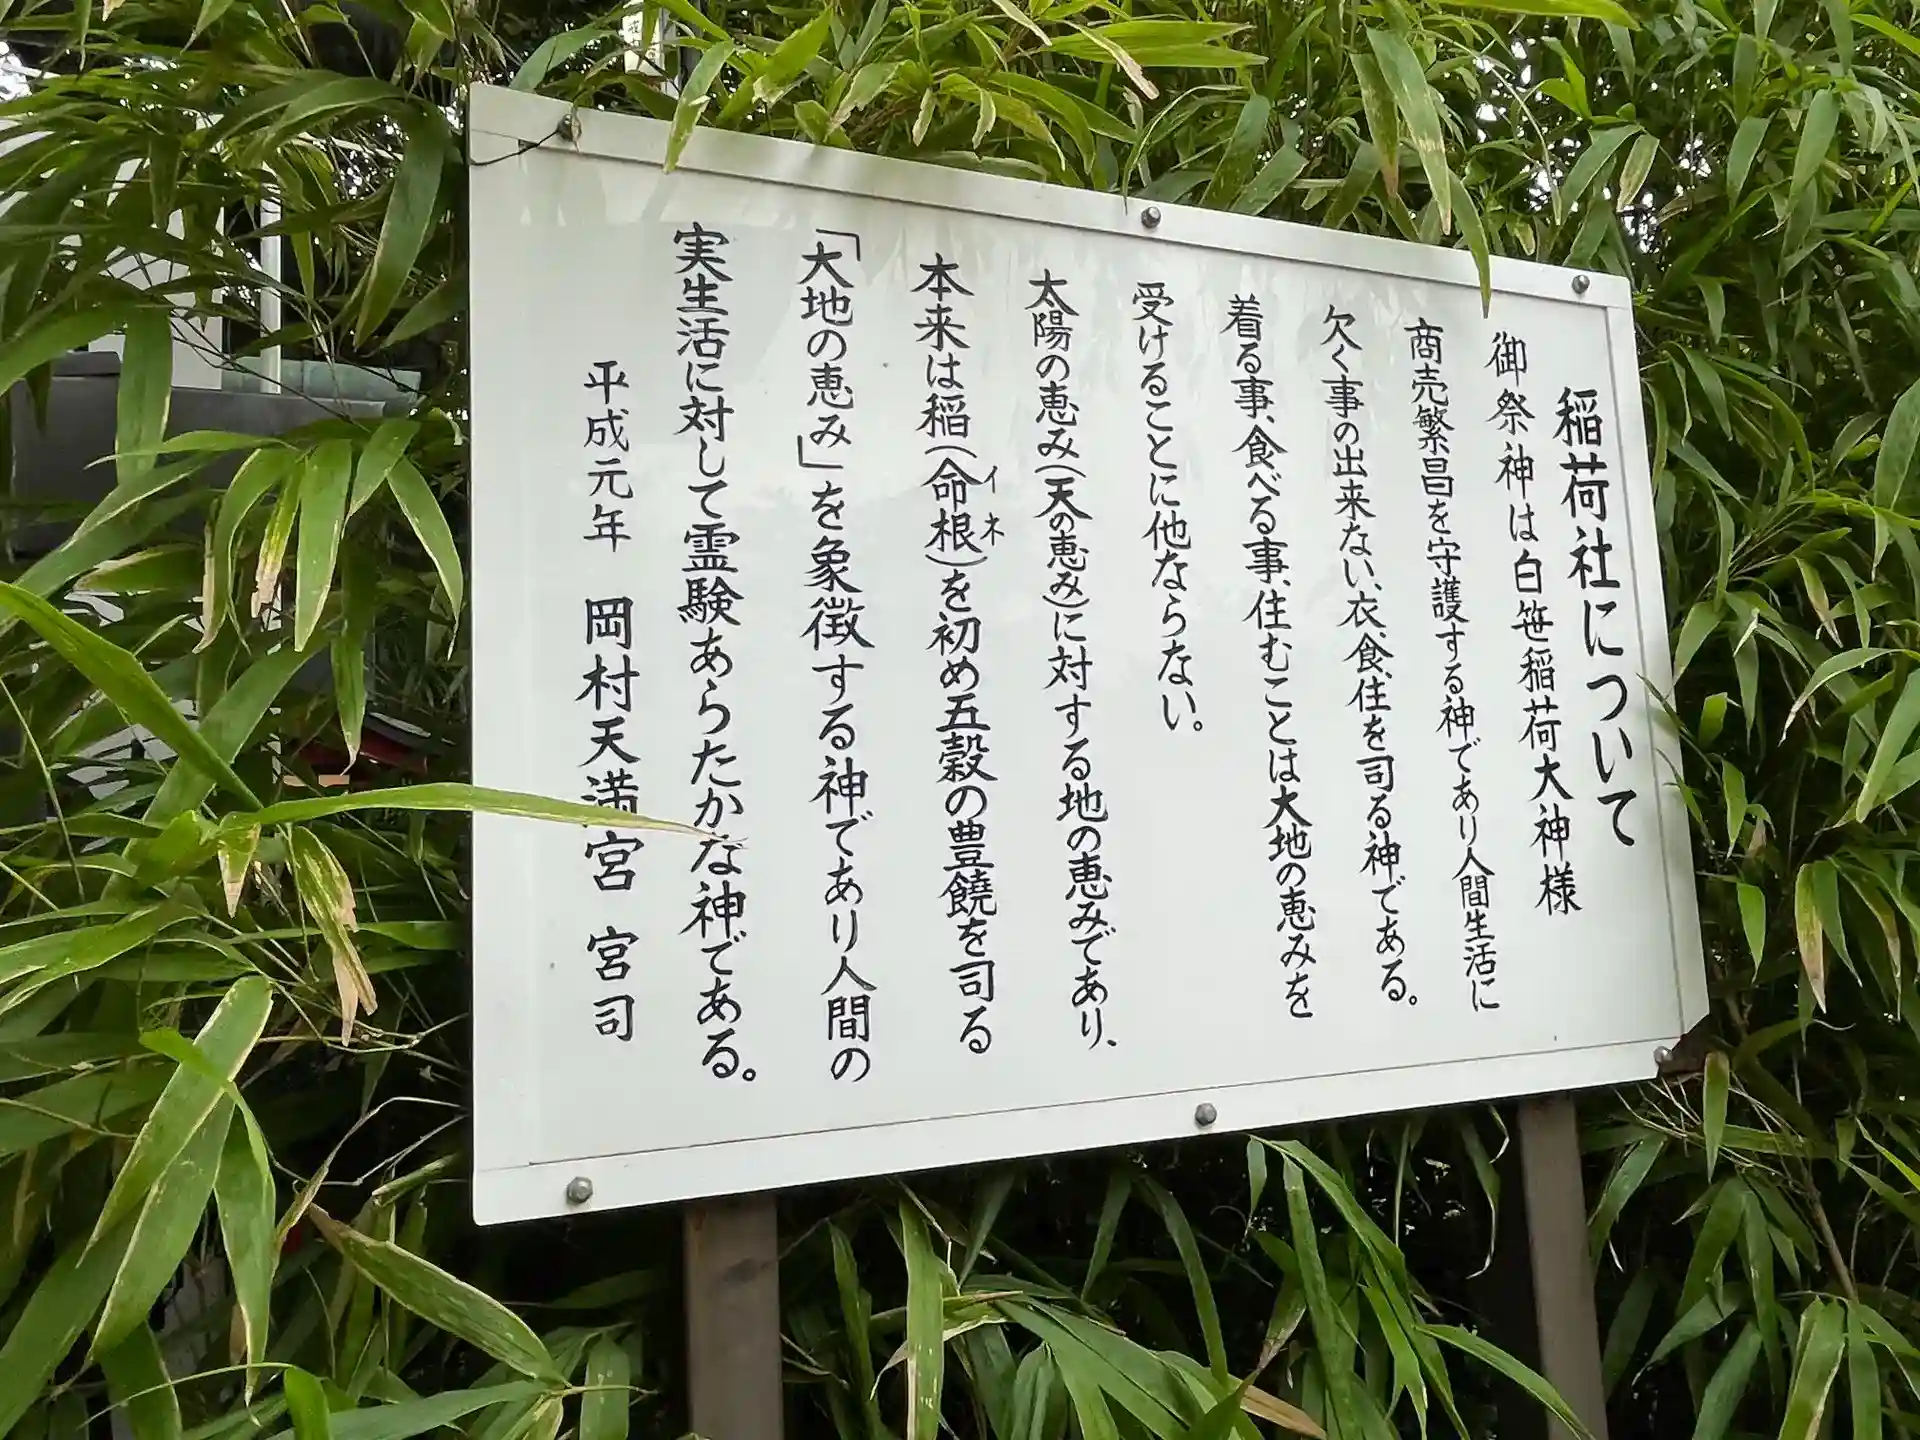 稲荷社について
御祭神は白笹稲荷大神様
商売繁昌を守護する神であり人間生活に
欠く事の出来ない、衣、食、住を司る神である。
着る事、食べる事、住むことは大地の恵みを
受けることに他ならない。
太陽の恵み(天の恵み)に対する地の恵みであり、
本来は稲(命根)を初め五穀の豊饒を司る
イネ
「大地の恵み」を象徴する神であり人間の
実生活に対して霊験あらたかな神である。
平成元年 岡村天満宮 宮司